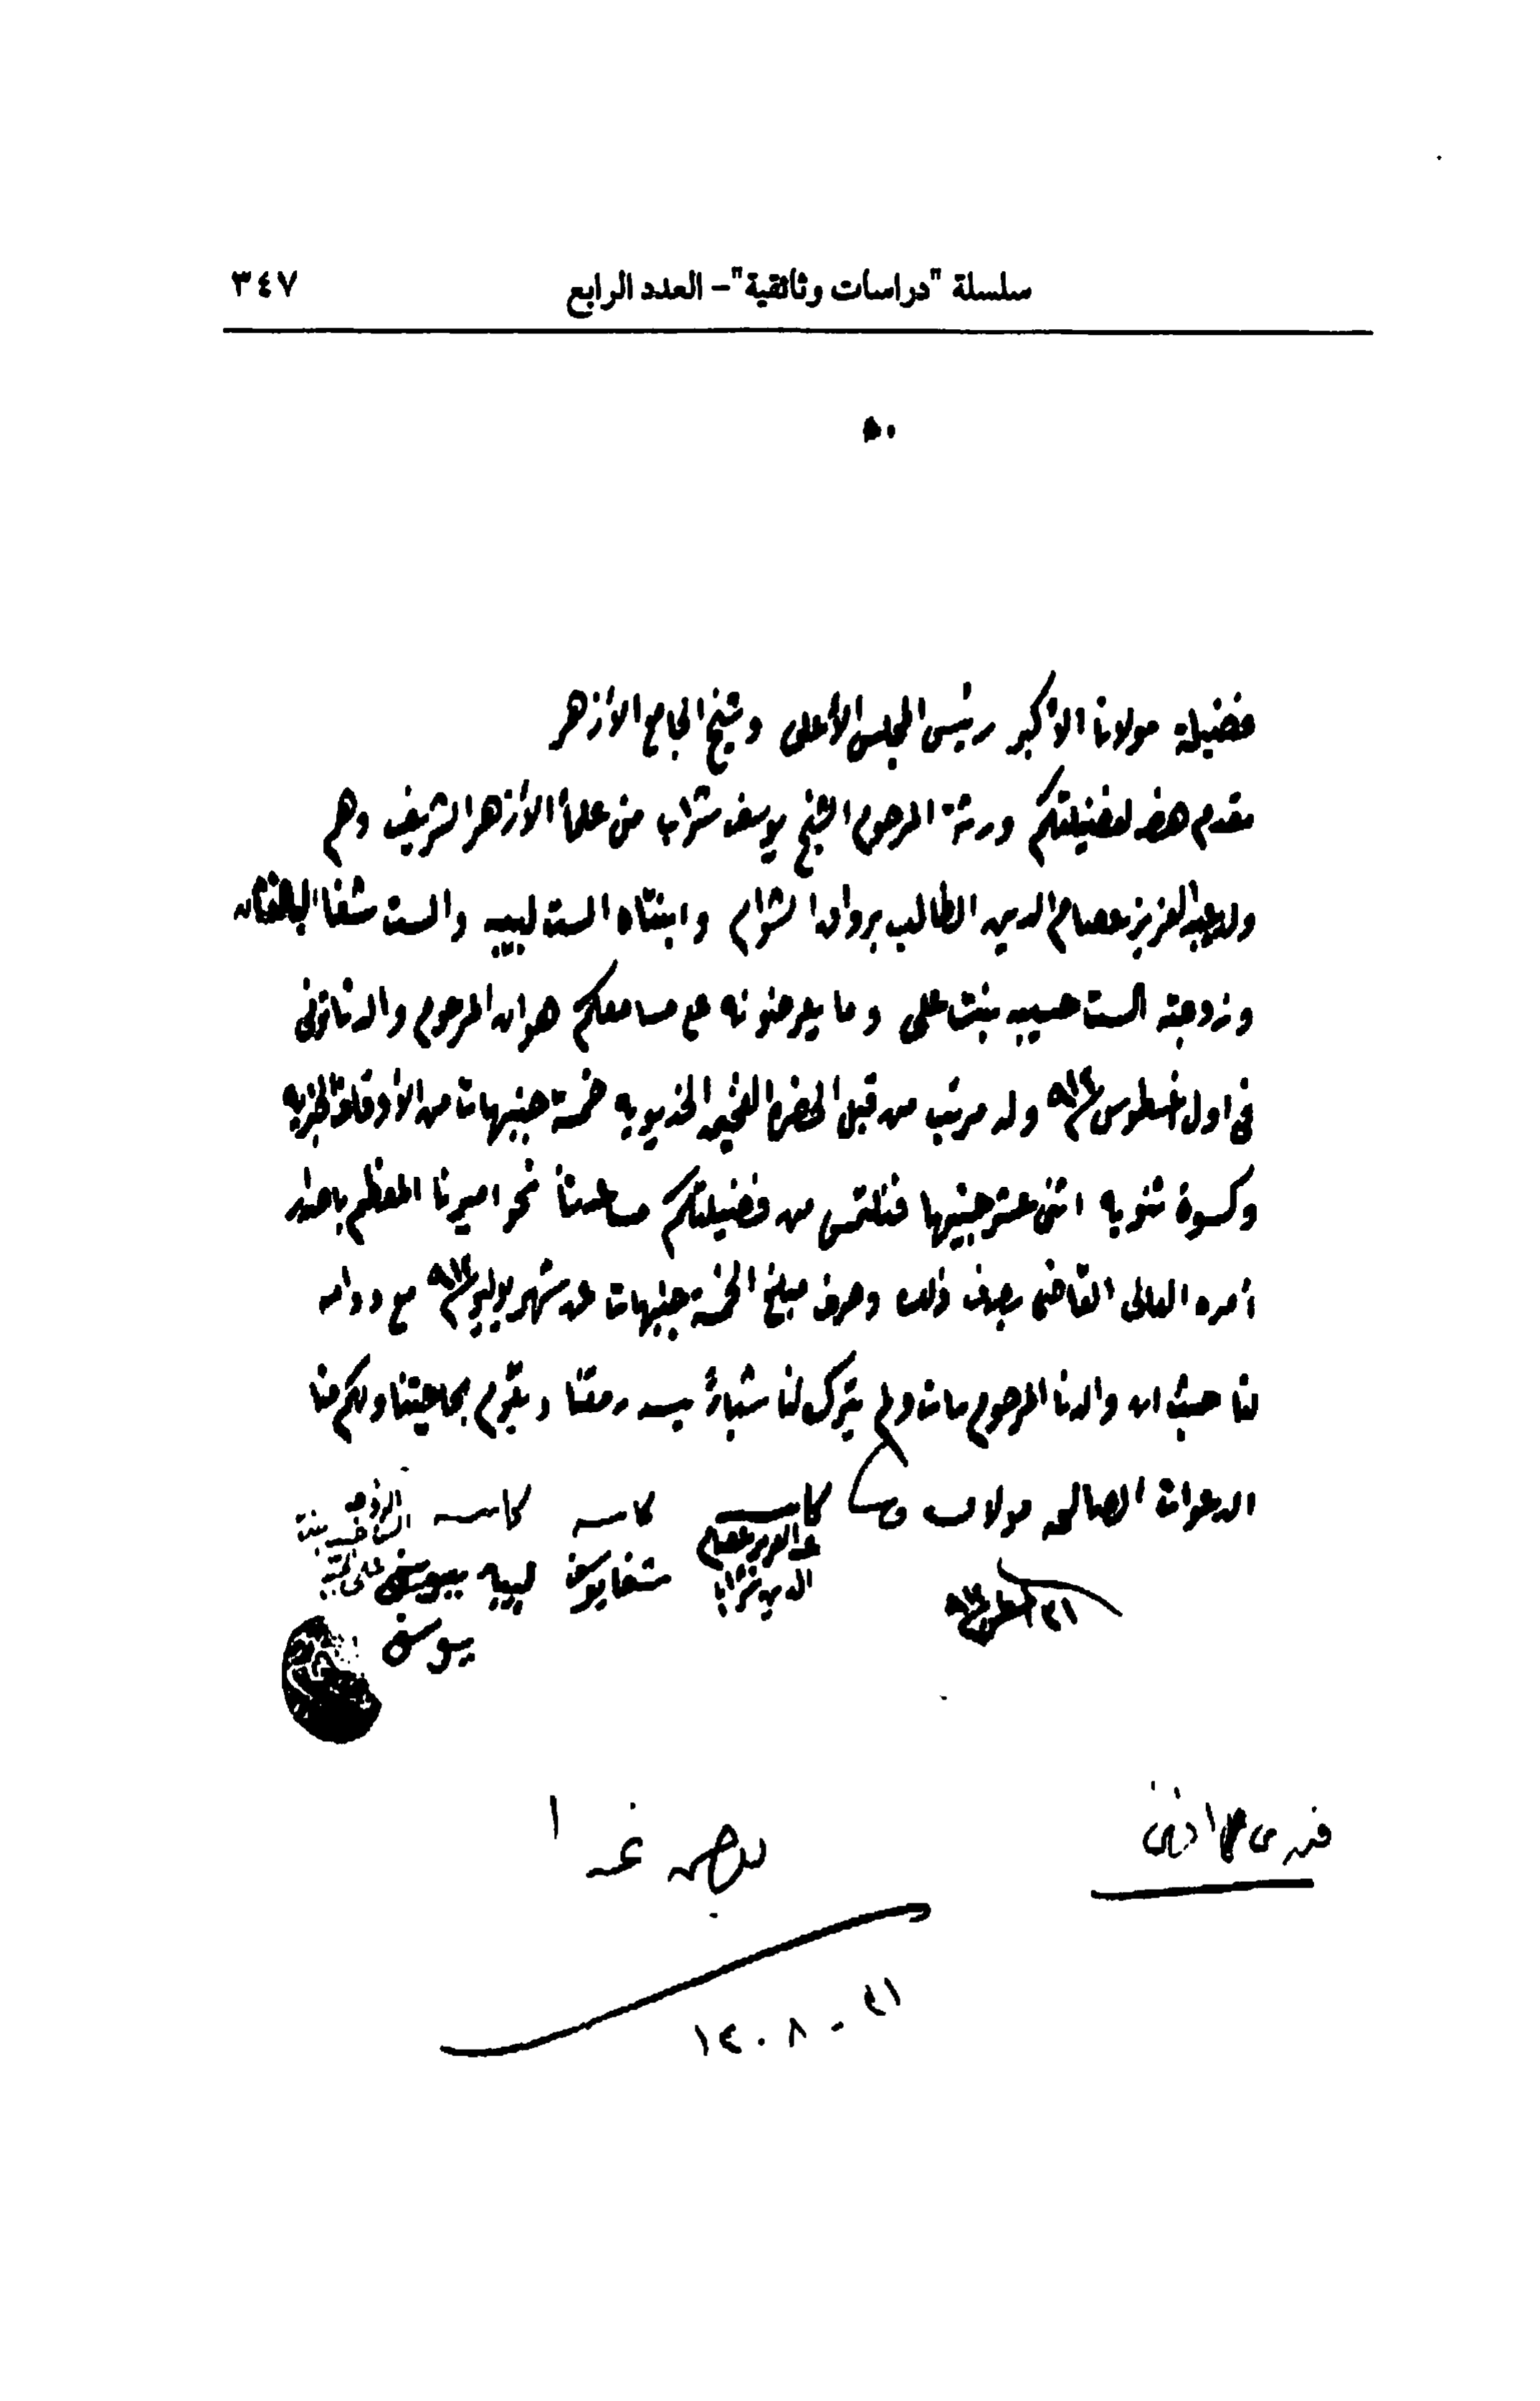 سلسلة "دراسات وثائقية"– العدد الرابع ٣٤٧
فضيلة مولانا الاكبر رئيس المجلس الأعلى وشيخ الجامع الأزهر
مقدم هذا لفضيلتكم ورثة المرحوم الشيخ يوسف شراب من علما الأزهر الشريف وهم
ولده عبد العزيز عصام الدين الطالب برواق الشوام وابنتاه الست لبيبه والست شفا البالغتان
وزوجته الست حسيبه بنت علي وما يعرضونه على مسامعكم هو ان المرحوم والدنا توفى
فى اول اغسطس وله مرتب من قبل الحضرة الفخيمه الخديويه خمسة جنيهات من الأوقاف الخيريه
وكسوة شنويه اثنى عشر جنيها فنلتمس من فضيلتكم مساعدتنا نحو اميرنا المعظم باصدار
أمره العالى القاضى بصرف ذلك وصرف مبلغ الخمسة جنيهات عن شهر يوليو مع دوامه
لنا حيث ان والدنا المرحوم مات ولم يترك لنا شيأ يسد رمقنا ويقوم بحاجيتنا ولكم منا
الدعوات الصالحه مولاى
كاتبه كاتبه كاتبه
عبد العزيز عصام الدين شراب
شفا يوسف
لبيبه يوسف
يوسف
١٢٠٨ - ٢١